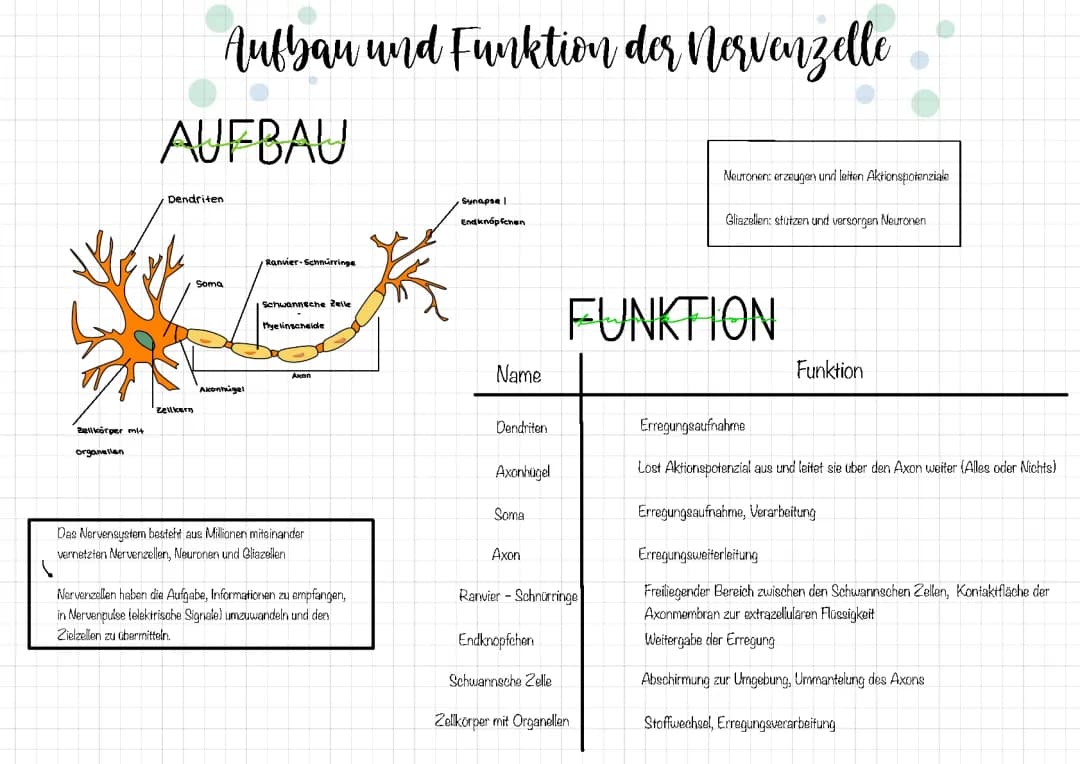 Aufbau und Funktion der Nervenzelle
AUFBAU
aufbau
Dendriten
Synapse |
Endknöpfchen
Ranvier-Schnürringe
Soma
Schwannsche Zelle
-
Myelinscheide
Axon
Axonhügel
Zellkern
Zellkörper mit
organellen
Das Nervensystem besteht aus Millionen miteinander
vernetzten Nervenzellen, Neuronen und Gliazellen
Nervenzellen haben die Aufgabe, Informationen zu empfangen,
in Nervenpulse (elektrische Signale) umzuwandeln und den
Zielzellen zu übermitteln.
Neuronen: erzeugen und leiten Aktionspotenziale
Gliazellen: stützen und versorgen Neuronen
FUNKTION
funktion
Name Funktion
Dendriten Erregungsaufnahme
Axonhügel Löst Aktionspotenzial aus und leitet sie über den Axon weiter (Alles oder Nichts)
Soma Erregungsaufnahme, Verarbeitung
Axon Erregungsweiterleitung
Ranvier - Schnürringe Freiliegender Bereich zwischen den Schwannschen Zellen, Kontaktfläche der
Axonmembran zur extrazellulären Flüssigkeit
Endknöpfchen Weitergabe der Erregung
Schwannsche Zelle Abschirmung zur Umgebung, Ummantelung des Axons
Zellkörper mit Organellen Stoffwechsel, Erregungsverarbeitung